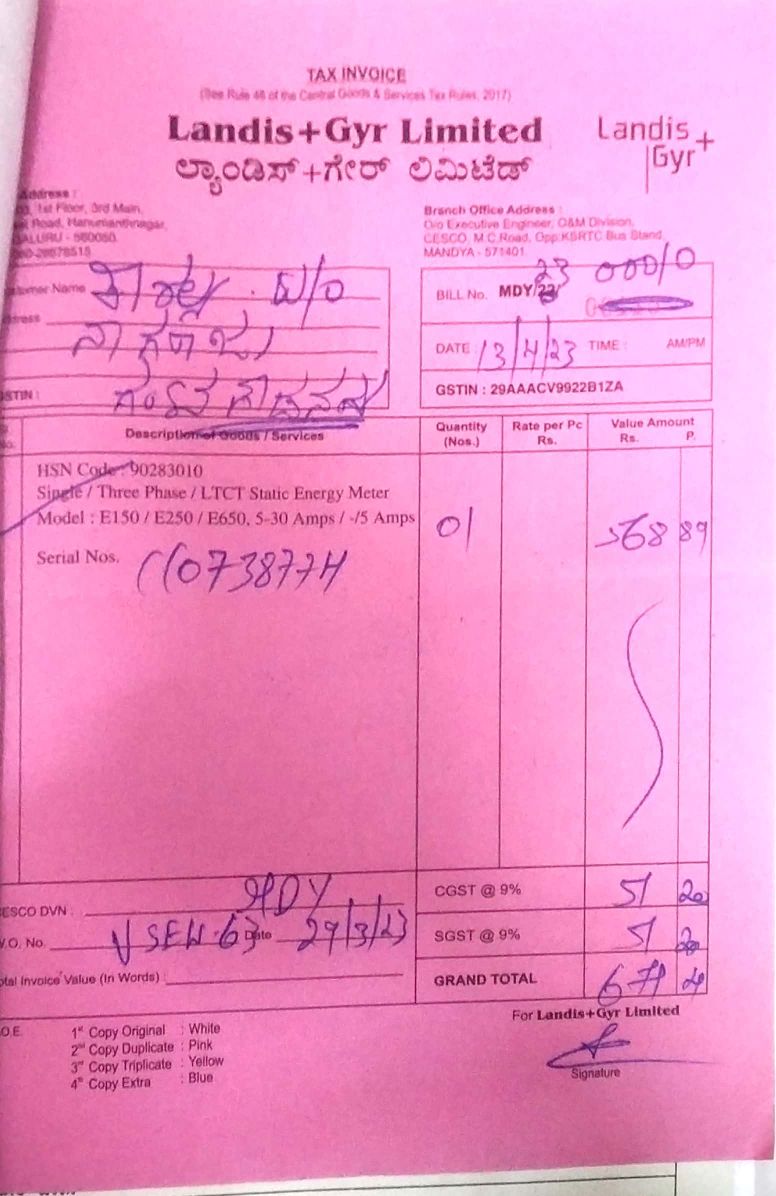 TAX INVOICE
(See Rule 46 of the Central Goods & Services Tax Rules, 2017)
Landis+Gyr Limited
ಲ್ಯಾಂಡಿಸ್+ಗೇರ್ ಲಿಮಿಟೆಡ್
Landis+
Gyr
Address :
1st Floor, 3rd Main,
Road, Hanumanthnagar,
- 560050.
Branch Office Address :
O/o Executive Engineer, O&M Division,
CESCO, M.C.Road, Opp.KSRTC Bus Stand,
MANDYA - 571401
Name
ನಾಗರಾಜು
GSTIN :
BILL No. MDY/23
DATE : 13/4/23 TIME : AM/PM
GSTIN : 29AAACV9922B1ZA
No. Description of Goods / Services Quantity (Nos.) Rate per Pc Rs. Value Amount Rs. P.
HSN Code : 90283010
Single / Three Phase / LTCT Static Energy Meter
Model : E150 / E250 / E650, 5-30 Amps / -/5 Amps 01 568 89
Serial Nos.
CESCO DVN : MDY
CGST @ 9% 51 20
W.O. No. Date 29/3/23
SGST @ 9% 51 20
Total Invoice Value (In Words) :
GRAND TOTAL 671
For Landis+Gyr Limited
O.E. 1st Copy Original : White
2nd Copy Duplicate : Pink
3rd Copy Triplicate : Yellow
4th Copy Extra : Blue
Signature